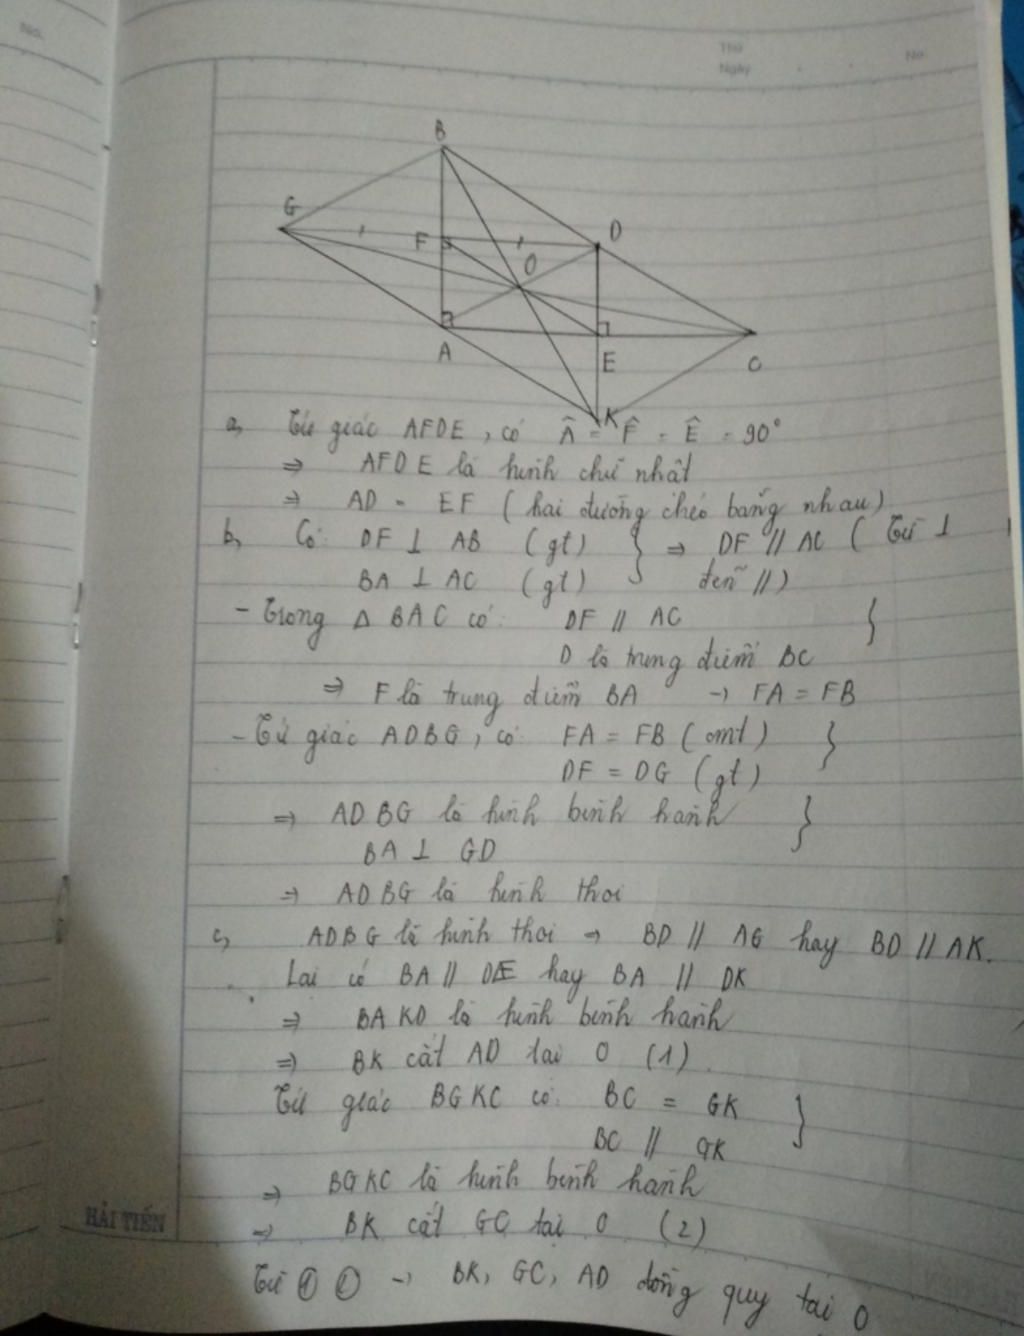 No.
Thứ
Ngày
No.
B
G
F
D
O
A
E
C
K
a, Tứ giác AFDE, có Â = F̂ = Ê = 90°
⇒ AFDE là hình chữ nhật
⇒ AD = EF (hai đường chéo bằng nhau)
b, Có: DF ⊥ AB (gt) } ⇒ DF // AC (Từ ⊥
BA ⊥ AC (gt) đến //)
- Trong Δ BAC có: DF // AC }
D là trung điểm BC
⇒ F là trung điểm BA → FA = FB
- Tứ giác ADBG, có: FA = FB (cmt) }
DF = DG (gt)
⇒ ADBG là hình bình hành }
BA ⊥ GD
⇒ ADBG là hình thoi
c, ADBG là hình thoi → BD // AG hay BD // AK.
Lại có BA // DE hay BA // DK
⇒ BAKD là hình bình hành
⇒ BK cắt AD tại O (1).
Tứ giác BGKC có: BC = GK }
BC // GK
⇒ BGKC là hình bình hành
⇒ BK cắt GC tại O (2)
HẢI TIẾN
Từ ① ② → BK, GC, AD đồng quy tại O